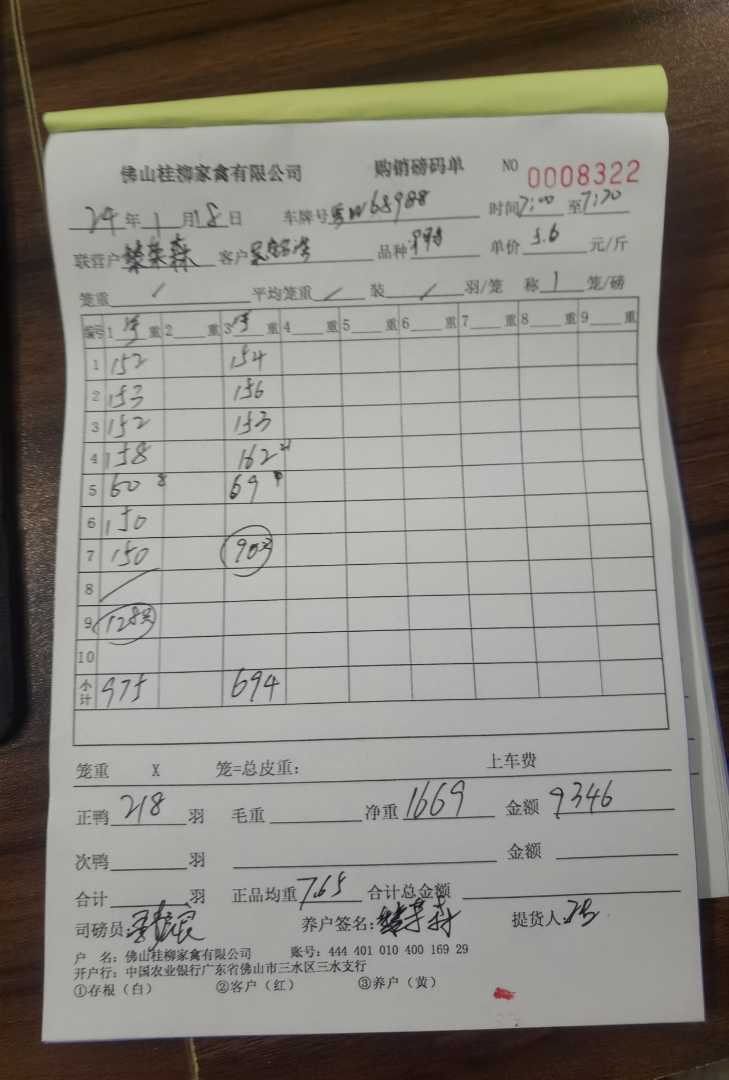 佛山桂柳家禽有限公司 购销磅码单 NO 0008322
24年1月8日 车牌号粤W68988 时间7:00至7:20
联营户 客户 品种 单价5.6元/斤
笼重/ 平均笼重/ 装/羽/笼 称1笼/磅
编号 1 重 2 重 3 重 4 重 5 重 6 重 7 重 8 重 9 重
1 152 154
2 153 156
3 152 153
4 158 162
5 60 8 69
6 150
7 150 90只
8 /
9 128只
10
小计 975 694
笼重 X 笼=总皮重: 上车费
正鸭218羽 毛重 净重1669 金额9346
次鸭 羽 金额
合计 羽 正品均重7.65 合计总金额
司磅员 养户签名: 提货人
户 名: 佛山桂柳家禽有限公司 账号: 444 401 010 400 169 29
开户行: 中国农业银行广东省佛山市三水区三水支行
①存根（白） ②客户（红） ③养户（黄）